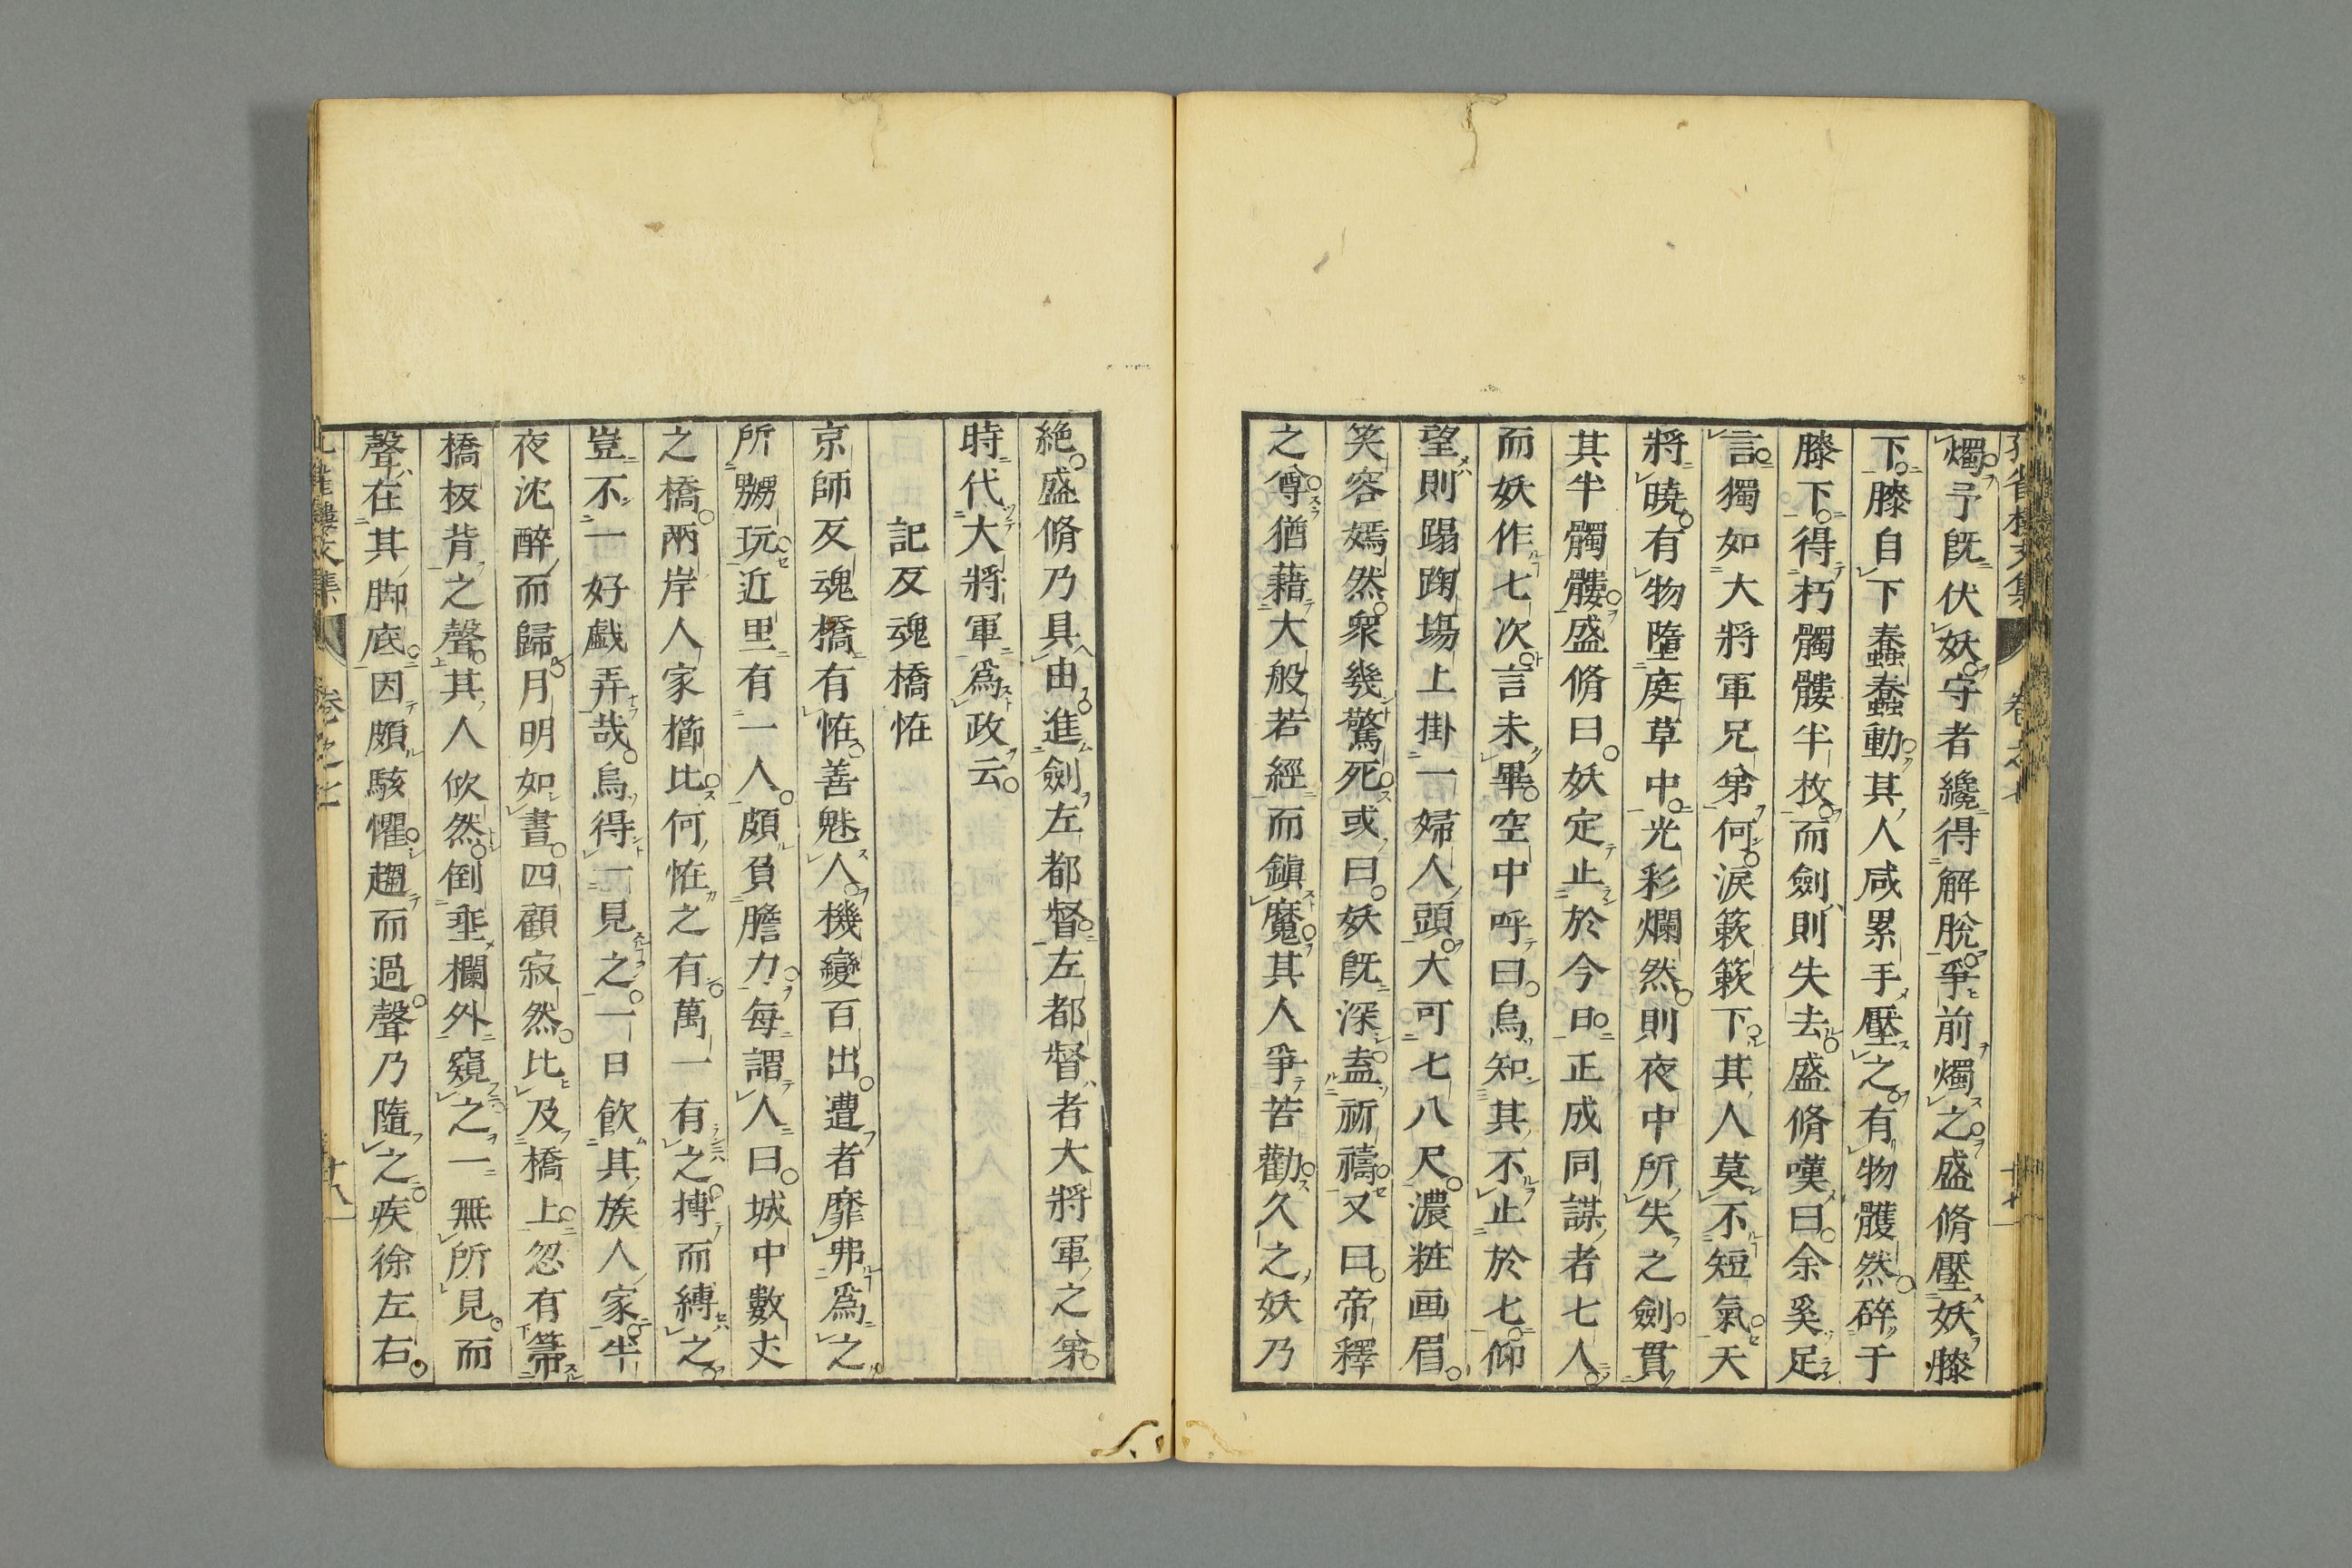 燭予既伏妖守者纔得解脫爭前燭之盛脩壓妖膝
下膝自下蠢蠢動其人咸累手壓之有物䨥然碎于
膝下得朽髑髏半枚而劍則失去盛脩嘆曰余奚足
言獨如大將軍兄弟何淚簌簌下其人莫不短氣天
將曉有物墮庭草中光彩爛然則夜中所失之劍貫
其半髑髏盛脩曰妖定止於今日正成同謀者七人
而妖作七次言未畢空中呼曰烏知其不止於七仰
望則蹋踘場上掛一婦人頭大可七八尺濃粧画眉
笑容嫣然衆幾驚死或曰妖既深蓋祈禱又曰帝釋
之尊猶藉大般若經而鎮魔其人爭苦勸久之妖乃
絶盛脩乃具由進劍左都督左都督者大將軍之弟
時代大將軍爲政云
記反魂橋恠
京師反魂橋有恠善魅人機變百出遭者靡弗爲之
所嬲玩近里有一人頗負膽力每謂人曰城中數丈
之橋兩岸人家櫛比何恠之有萬一有之搏而縛之
豈不一好戯弄哉烏得一見之一日飲其族人家半
夜沈醉而歸月明如晝四顧寂然比及橋上忽有箒
橋板背之聲其人佽然倒垂欄外窺之一無所見而
聲在其脚底因頗駭懼趨而過聲乃隨之疾徐左右